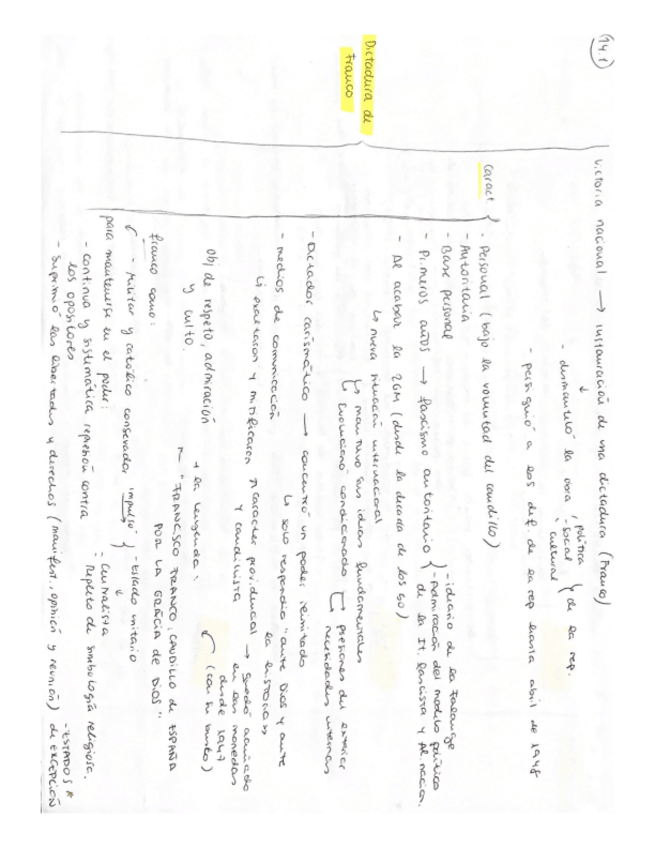 14.1
Victoria nacional → instauración de una dictadura (Franco)
↓
- desmanteló la obra { - política - social - cultural } de la rep.
- persiguió a los dif. de la rep hasta abril de 1948
Dictadura de
Franco
Caract {
- Personal (bajo la voluntad del caudillo)
- Autoritaria
- Base personal
- Primeros años → fascismo autoritario { - ideario de la Falange
- Admiración del modelo político
de la It. fascista y Al. nacion.
- Al acabar la 2GM (desde la década de los 50)
↳ nueva situación internacional
↳ mantuvo sus ideas fundamentales
↳ Evolucionó condicionado ↳ presiones del exterior
necesidades internas
- Dictador carismático → concentró un poder ilimitado
↳ solo respondía "ante Dios y ante
la historia"
- medios de comunicación
↳ exaltación y mitificación ↗ carácter providencial → quedó acuñado
y caudillista en las monedas
desde 1947
(con su busto)
obj de respeto, admiración
y culto.
+ la leyenda:
"FRANCISCO FRANCO, CAUDILLO DE ESPAÑA
POR LA GRACIA DE DIOS"
Franco como:
- Militar y católico conservador impulsó { - Estado unitario
- Centralista
Repleto de simbología religiosa.
para mantenerse en el poder:
- continua y sistemática represión contra
los opositores
- Suprimió las libertades y derechos (manifest., opinión y reunión)
- ESTADOS *
de EXCEPCIÓN